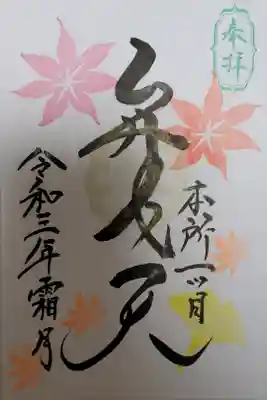 奉拝
本所一ツ目
弁天
令和三年霜月